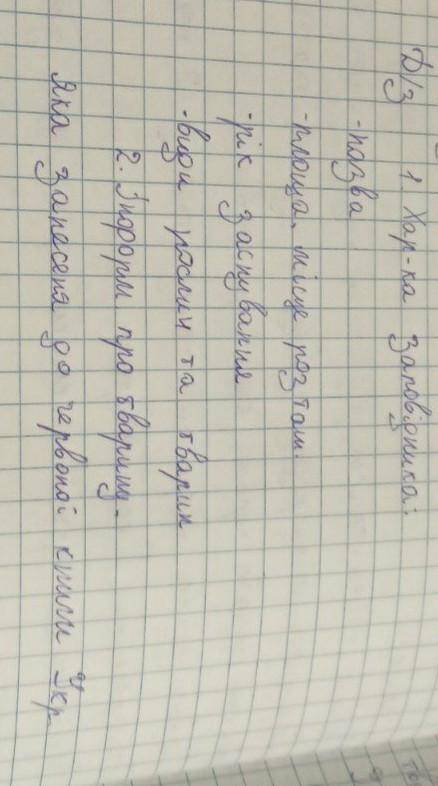 Д/З 1. Хар-ка заповідника:
-назва
-площа, місце розташ.
-рік заснування
-види рослин та тварин
2. Інформ про тварину,
яка занесена до червоної книги Укр